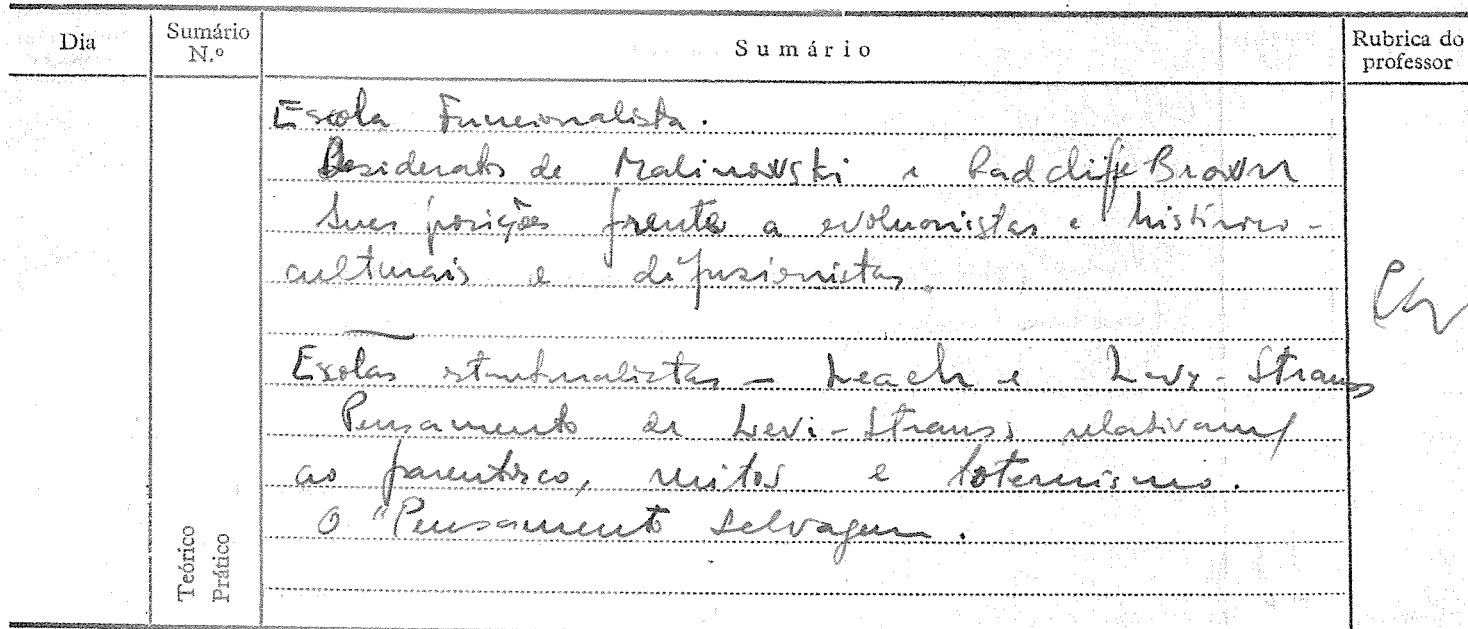 Dia
Sumário N.º
Sumário
Rubrica do professor
Escola Funcionalista.
Desiderato de Malinowski e Radcliffe Brown
Suas posições frente a evolucionistas e histórico-
culturais e difusionistas.
Escolas estruturalistas – Leach e Levy-Strauss
Pensamento de Levi-Strauss relativam/
ao parentesco, mitos e totemismo.
O "Pensamento Selvagem.
Teórico
Prático